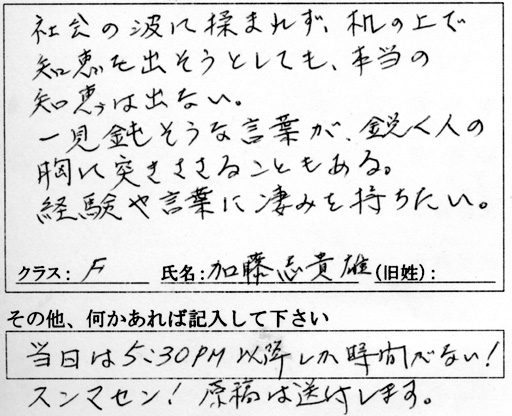 社会の波に揉まれず、机の上で
知恵を出そうとしても、本当の
知恵は出ない。
一見鈍そうな言葉が、鋭く人の
胸に突きささることもある。
経験や言葉に凄みを持ちたい。
クラス: F 氏名:加藤志貴雄(旧姓):
その他、何かあれば記入して下さい
当日は5:30PM以降しか時間がない!
スンマセン! 原稿は送付します。